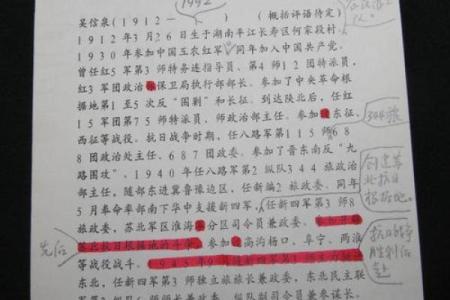 1992
吴信泉（1912—　　）　（概括评语待定）
1912年3月26日生于湖南平江长寿区何家段村，
1930年参加中国工农红军，同年加入中国共产党。
曾任红3军第3师特务连指导员、第4师12团特派员，
红3军团政治保卫局执行部部长。参加了中央革命根
据地第1至5次反“围剿”和长征。到达陕北后，任红
15军团第75师特派员，师政治部主任。参加东征、
西征等战役。抗日战争时期，任八路军第115师68
8团政治处主任、687团政委。参加了晋东南反“九
路围攻”。1940年任八路军第2纵队344旅政治
部主任，随部东进冀鲁豫边区，任新编2旅政委。同年
5月奉命率部南下华中支援新四军，任新四军第3师8
旅政委，苏北军区淮海军分区司令员兼政委。
苏北抗日根据地的斗争，参加高沟杨口、阜宁、两淮
等战役战斗。1945年
东北，任新四军第3师独立旅旅长兼政委，东北民主联
344旅
创建苏
北抗日
根据地。
抗日战争
胜利后
先后